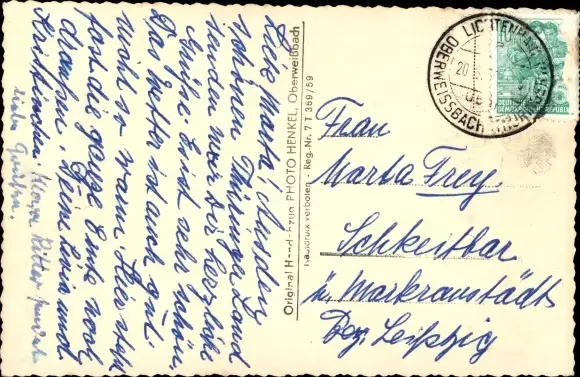 Liebe Marta! Aus dem
schönen Thüringer Land
senden wir Dir herzliche
Grüße. Es ist sehr schön.
Das Wetter ist auch gut.
und so warm. Hier steht
fast die ganze Ernte noch
draußen. Deine Luise und
Original Handabzug PHOTO HENKEL, Oberweißbach
Nachdruck verboten. Reg.-Nr. 7 T 369/59
LICHTENHAIN
OBERWEISSBACH
20
DEUTSCHE
DEMOKRATISCHE REPUBLIK
Frau
Marta Frey
Schkeitbar
ü. Markranstädt
Bez. Leipzig